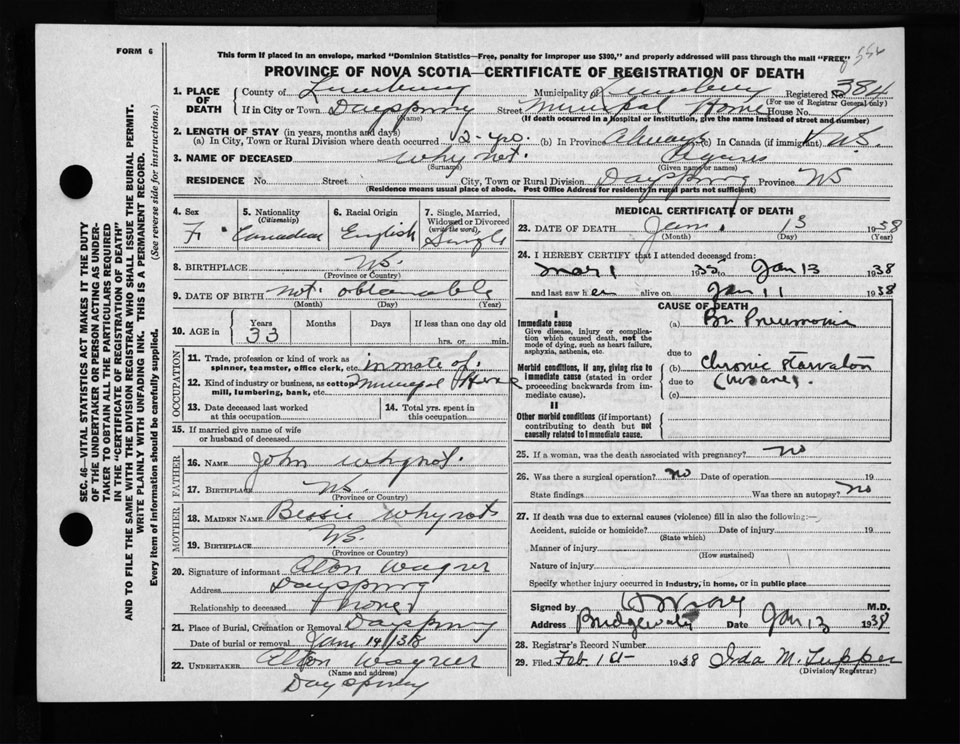 FORM 6
This form if placed in an envelope, marked "Dominion Statistics—Free, penalty for improper use $300," and properly addressed will pass through the mail "FREE"
PROVINCE OF NOVA SCOTIA—CERTIFICATE OF REGISTRATION OF DEATH
SEC. 46—VITAL STATISTICS ACT MAKES IT THE DUTY
OF THE UNDERTAKER OR PERSON ACTING AS UNDER-
TAKER TO OBTAIN ALL THE PARTICULARS REQUIRED
IN THE "CERTIFICATE OF REGISTRATION OF DEATH"
AND TO FILE THE SAME WITH THE DIVISION REGISTRAR WHO SHALL ISSUE THE BURIAL PERMIT.
WRITE PLAINLY WITH UNFADING INK. THIS IS A PERMANENT RECORD.
Every item of information should be carefully supplied. (See reverse side for instructions.)
1. PLACE OF DEATH County of Lunenburg Municipality of Lunenburg Registered No. 384
(For use of Registrar General only)
If in City or Town Dayspring Street Municipal Home House No.
(Name) (If death occurred in a hospital or institution, give the name instead of street and number)
2. LENGTH OF STAY (in years, months and days)
(a) In City, Town or Rural Division where death occurred 2-yrs. (b) In Province Always (c) In Canada (if immigrant) N.S.
3. NAME OF DECEASED Whynot. Agnes
(Surname) (Given name or names)
RESIDENCE No. Street City, Town or Rural Division Dayspring Province NS
(Residence means usual place of abode. Post Office Address for residents in rural parts not sufficient)
4. Sex F.
5. Nationality (Citizenship) Canadian
6. Racial Origin English
7. Single, Married, Widowed or Divorced (write the word) Single
8. BIRTHPLACE NS.
(Province or Country)
9. DATE OF BIRTH not obtainable
(Month) (Day) (Year)
10. AGE in Years 33 Months Days If less than one day old hrs. or min.
OCCUPATION
11. Trade, profession or kind of work as spinner, teamster, office clerk, etc. inmate of
12. Kind of industry or business, as cotton mill, lumbering, bank, etc. Municipal Home
13. Date deceased last worked at this occupation
14. Total yrs. spent in this occupation
15. If married give name of wife or husband of deceased
FATHER
16. Name John Whynot.
17. Birthplace NS.
(Province or Country)
MOTHER
18. Maiden Name Bessie Whynot
19. Birthplace NS.
(Province or Country)
20. Signature of informant Alton Wagner
Address Dayspring
Relationship to deceased none
21. Place of Burial, Cremation or Removal Dayspring
Date of burial or removal Jan 14/38
22. UNDERTAKER Alton Wagner
(Name and address)
Dayspring
MEDICAL CERTIFICATE OF DEATH
23. DATE OF DEATH Jan. 13 1938
(Month) (Day) (Year)
24. I HEREBY CERTIFY that I attended deceased from:
Mar 1 1935 to Jan 13 1938
and last saw her alive on Jan 11 1938
CAUSE OF DEATH
I
Immediate cause
Give disease, injury or complication which caused death, not the mode of dying, such as heart failure, asphyxia, asthenia, etc.
(a) Br Pneumonia
due to
Morbid conditions, if any, giving rise to immediate cause (stated in order proceeding backwards from immediate cause).
(b) Chronic Starvation
due to (Insane).
(c)
II
Other morbid conditions (if important) contributing to death but not causally related to immediate cause.
25. If a woman, was the death associated with pregnancy? no
26. Was there a surgical operation? no Date of operation 19
State findings Was there an autopsy? no
27. If death was due to external causes (violence) fill in also the following:—
Accident, suicide or homicide? Date of injury 19
(State which)
Manner of injury
(How sustained)
Nature of injury
Specify whether injury occurred in Industry, in home, or in public place
Signed by M.D.
Address Bridgewater Date Jan 13 1938
28. Registrar's Record Number
29. Filed Feb. 1st 1938 Ida M. Tupper
(Division Registrar)